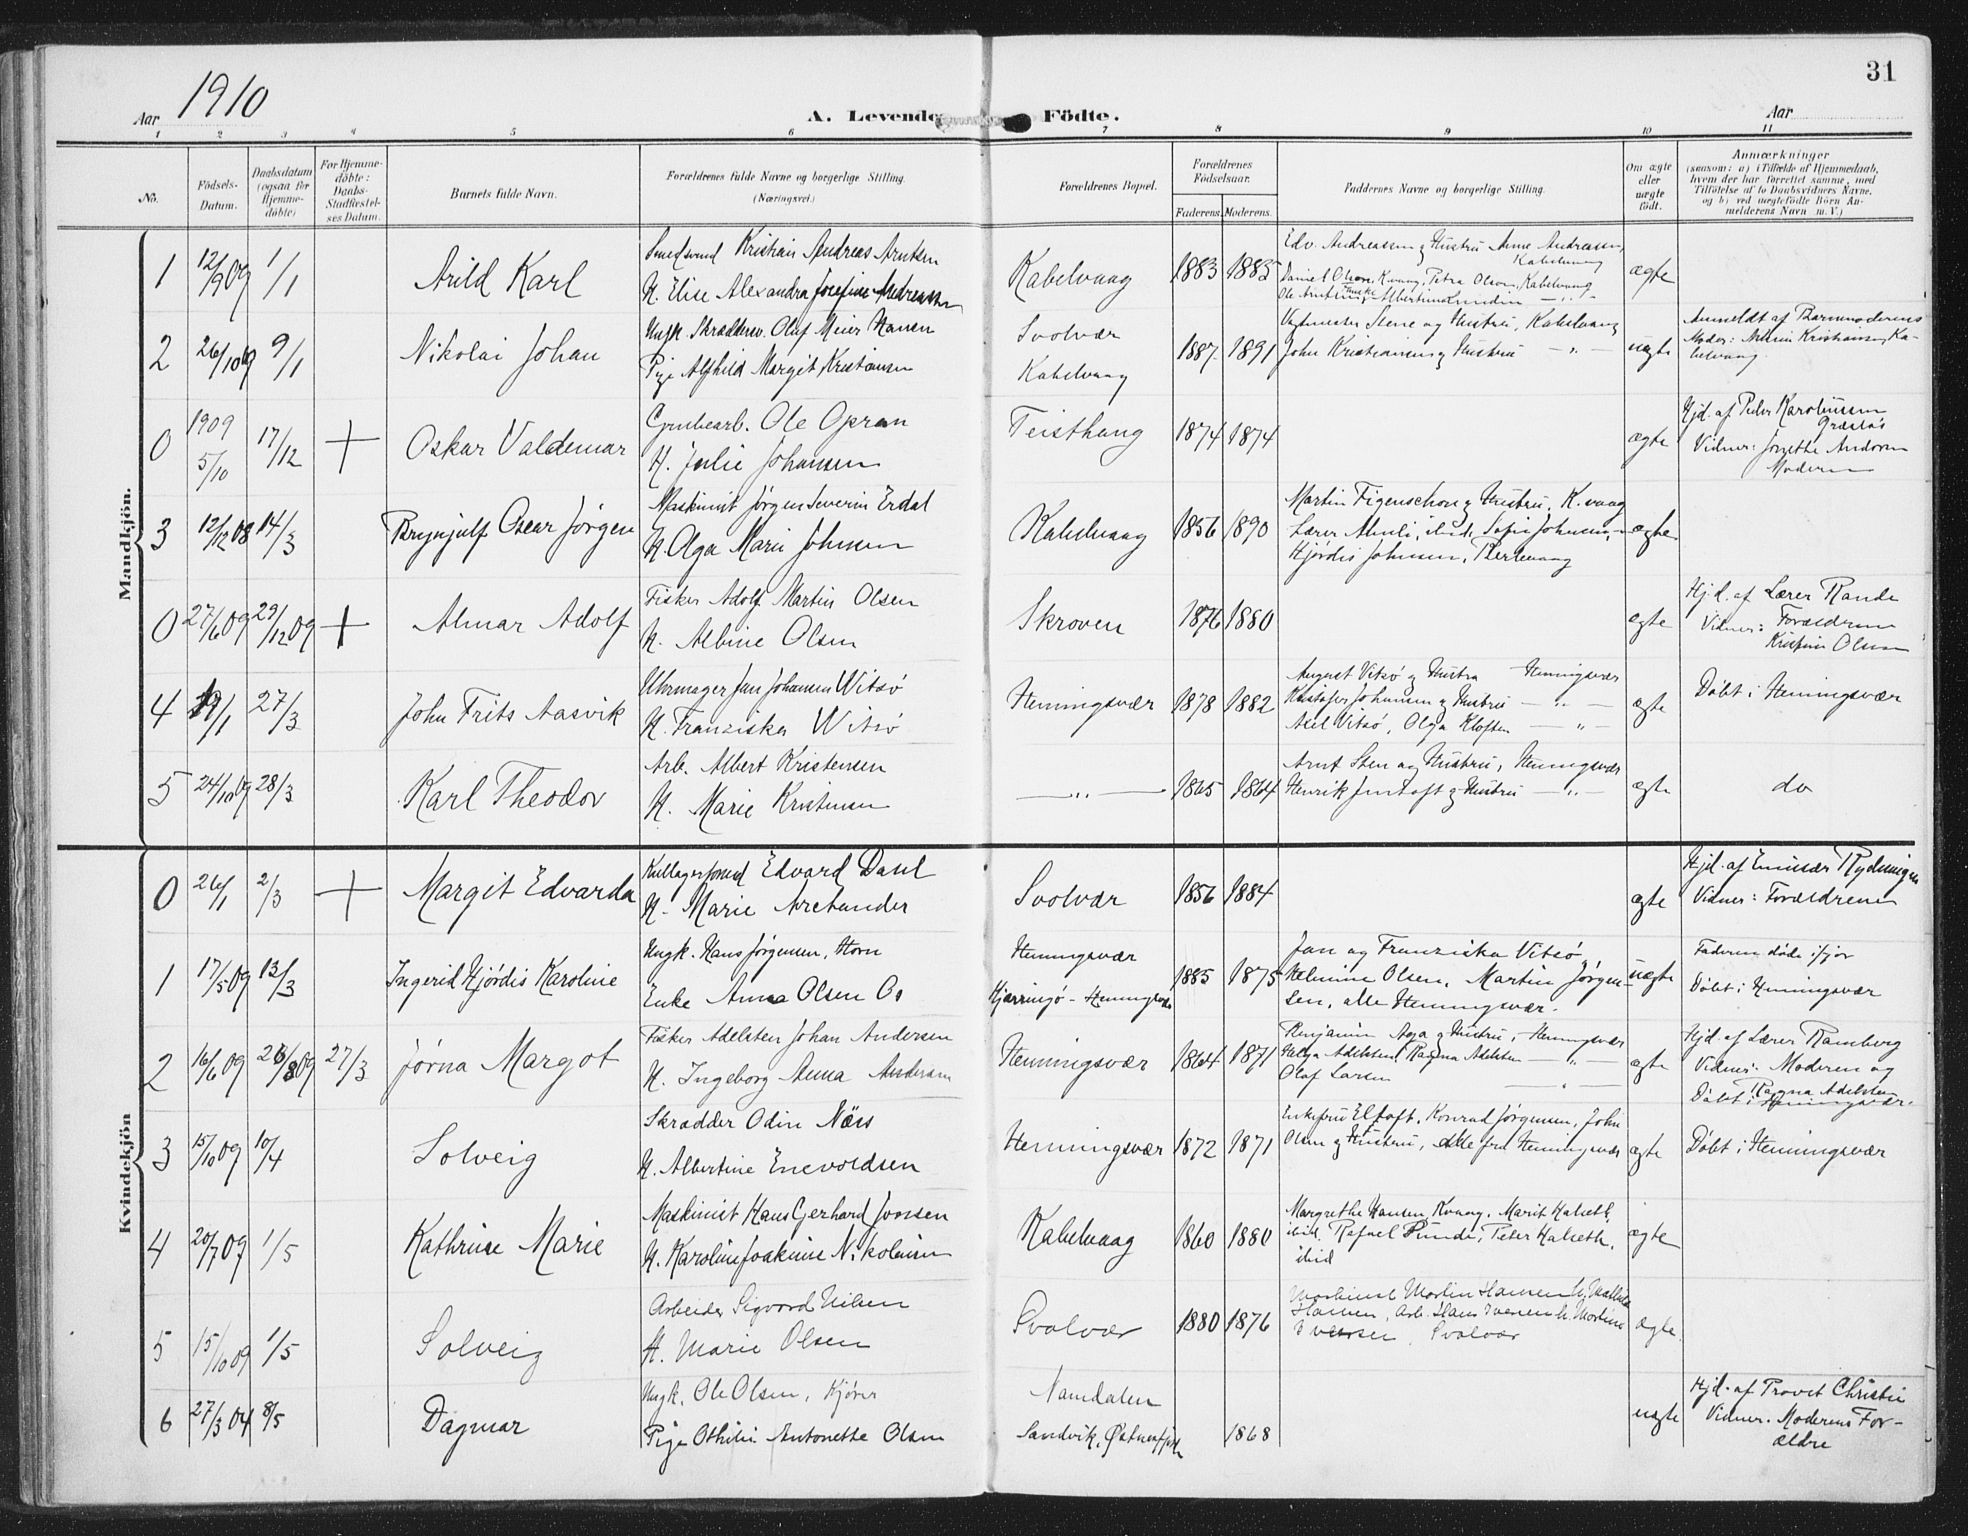 31
Aar 1910
A. Levende Födte.
Aar
1 2 3 4 5 6 7 8 9 10 11
No.
Födsels-
Datum.
Daabsdatum
(ogsaa for
Hjemme-
döbte)
For Hjemme-
döbte:
Daabs-
Stadfæstel-
ses Datum.
Barnets fulde Navn.
Forældrenes fulde Navne og borgerlige Stilling.
(Næringsvei.)
Forældrenes Bopæl.
Forældrenes
Födselsaar.
Faderens. Moderens.
Faddernes Navne og borgerlige Stilling.
Om ægte
eller
uægte
födt.
Anmærkninger
(saasom: a) i Tilfælde af Hjemmedaab,
hvem der har forrettet samme, med
Tilföielse af to Daabsvidners Navne,
og b) ved uægtefödte Börn An-
melderens Navn m. V.)
Mandkjön.
1 12/9 09 1/1 Arild Karl
Smedsvend Kristian Andreas Arntsen
H. Elise Alexandra Josefine Andreassen
Kabelvaag 1883 1885
Edv. Andreassen og Hustru Anne Andreassen,
Kabelvaag
Daniel Olsen, Kvaag, Petra Olsen, Kabelvaag
ægte
2 26/10 09 9/1 Nikolai Johan
Ungk. Skræddersv. Oluf Meier Hansen
Pige Alfhild Margit Kristiansen
Svolvær
Kabelvaag
1887 1891
Stene og Hustru, Kabelvaag
John Kristiansen og Hustru — " —
uægte
Anmeldt af Barnemoderens
Moder: Kristiansen, Ka-
belvaag.
0 1909 5/10 17/12 + Oskar Valdemar
Grubearb. Ole Opran
H. Julie Johansen
Teisthaug 1874 1874
ægte
Hjd. af Peder Karolinssen
Vidner: Jorgethe Andorsen
Moderen
3 12/12 08 14/3 Brynjulf Oscar Jørgen
Maskinist Jørgen Severin Erdal
H. Olga Marie Johnsen
Kabelvaag 1856 1890
Martin Figenschou og Hustru, K.vaag
Lærer Almli, ibid, Sofie Johnsen, —
Hjørdis Johnsen, Berlevaag
ægte
0 27/6 09 29/12 09 + Almar Adolf
Fisker Adolf Martin Olsen
H. Albine Olsen
Skroven 1876 1880
ægte
Hj.d. af Lærer Rande
Vidner: Forældrene
Kristine Olsen
4 19/1 27/3 John Frits Aasvik
Uhrmager Jan Johansen Witsø
H. Franziska Witsø
Henningsvær 1878 1882
August Vitsø og Hustru Henningsvær
Kristofer Johansen og Hustru — " —
Axel Vitsø, Olga Kloften — " —
ægte
Døbt i Henningsvær
5 24/10 09 28/3 Karl Theodor
Arb. Albert Kristensen
H. Marie Kristensen
— " — 1865 1864
Arnt Sten og Hustru, Henningsvær
Henrik Jentoft og Hustru — " —
ægte
do
Kvindekjön
0 26/1 2/3 + Margit Edvarda
Edvard Dasel
H. Marie Archander
Svolvær 1856 1884
ægte
Hjd. af Emissær Rydningen
Vidner: Forældrene
1 17/5 09 13/3 Ingerid Hjørdis Karoline
Ungk. Hans Jørgensen, Horn
Enke Anna Olsen Os
Henningsvær
Kjerringø - Henningsvær
1885 1875
Jan og Franziska Vitsø,
Helmine Olsen, Martin Jørgen-
sen, alle Henningsvær.
uægte
Faderen døde ifjor
Døbt i Henningsvær
2 16/6 09 26/8 09 27/3 Jørna Margot
Fisker Adelsten Johan Andersen
H. Ingeborg Anna Andersen
Henningsvær 1864 1871
Benjamin Aga og Hustru, Henningsvær
Helga Adelsten, Ragna Adelsten — " —
Olaf Larsen — " —
ægte
Hjd. af Lærer Ramberg
Vidner: Moderen og
Ragna Adelsten
Døbt i Henningsvær.
3 15/10 09 10/4 Solveig
Skrædder Odin Näss
H. Albertine Enevoldsen
Henningsvær 1872 1871
Enkefru Eltoft, Konrad Jørgensen, John
Olsen og Hustru, alle fra Henningsvær
ægte
Døbt i Henningsvær
4 20/7 09 1/5 Kathrine Marie
Maskinist Hans Gerhard Jonsen
H. Karoline Joakime Nikolaisen
Kabelvaag 1860 1880
Margrethe Hansen, Kvaag, Marit Kalseth,
ibid. Rafael Runde, Peter Kalseth,
ibid
ægte
5 15/10 09 1/5 Solveig
Arbeider Sigvard Nilsen
H. Marie Olsen
Svolvær 1880 1876
Maskinist Martin Hansen h. Mathilde
Hansen, Arb. Hans Iversen h. Martine
Iversen, Svolvær
ægte.
6 27/3 04 8/5 Dagmar
Ungk. Ole Olsen, Kjører
Pige Othilie Antonette Olsen
Namdalen
Sandvik, Østnesfjord
1868
uægte
Hjd. af Provst Christie
Vidner. Moderens For-
ældre